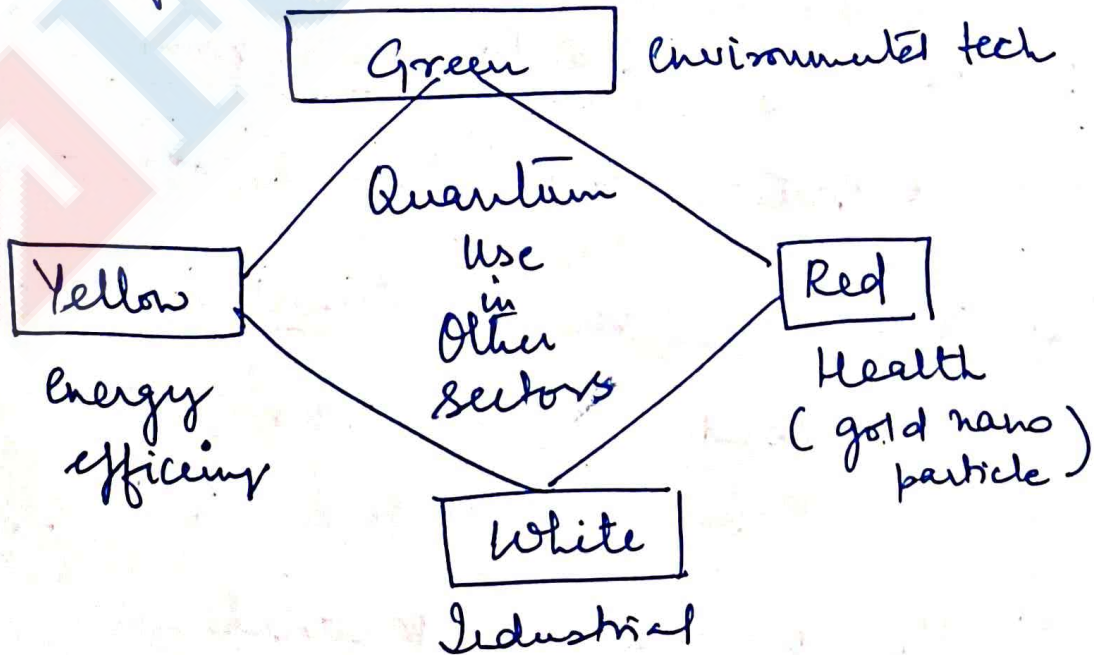 Green
environmental tech
Quantum
use
in
Other
sectors
Yellow
energy
efficiency
Red
Health
(gold nano
particle)
White
Industrial